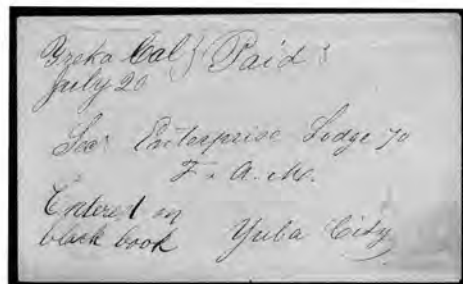 Yreka Cal } Paid 3
July 20
Sec. Enterprise Lodge 70
F. & A. M.
Entered on
black book
Yuba City